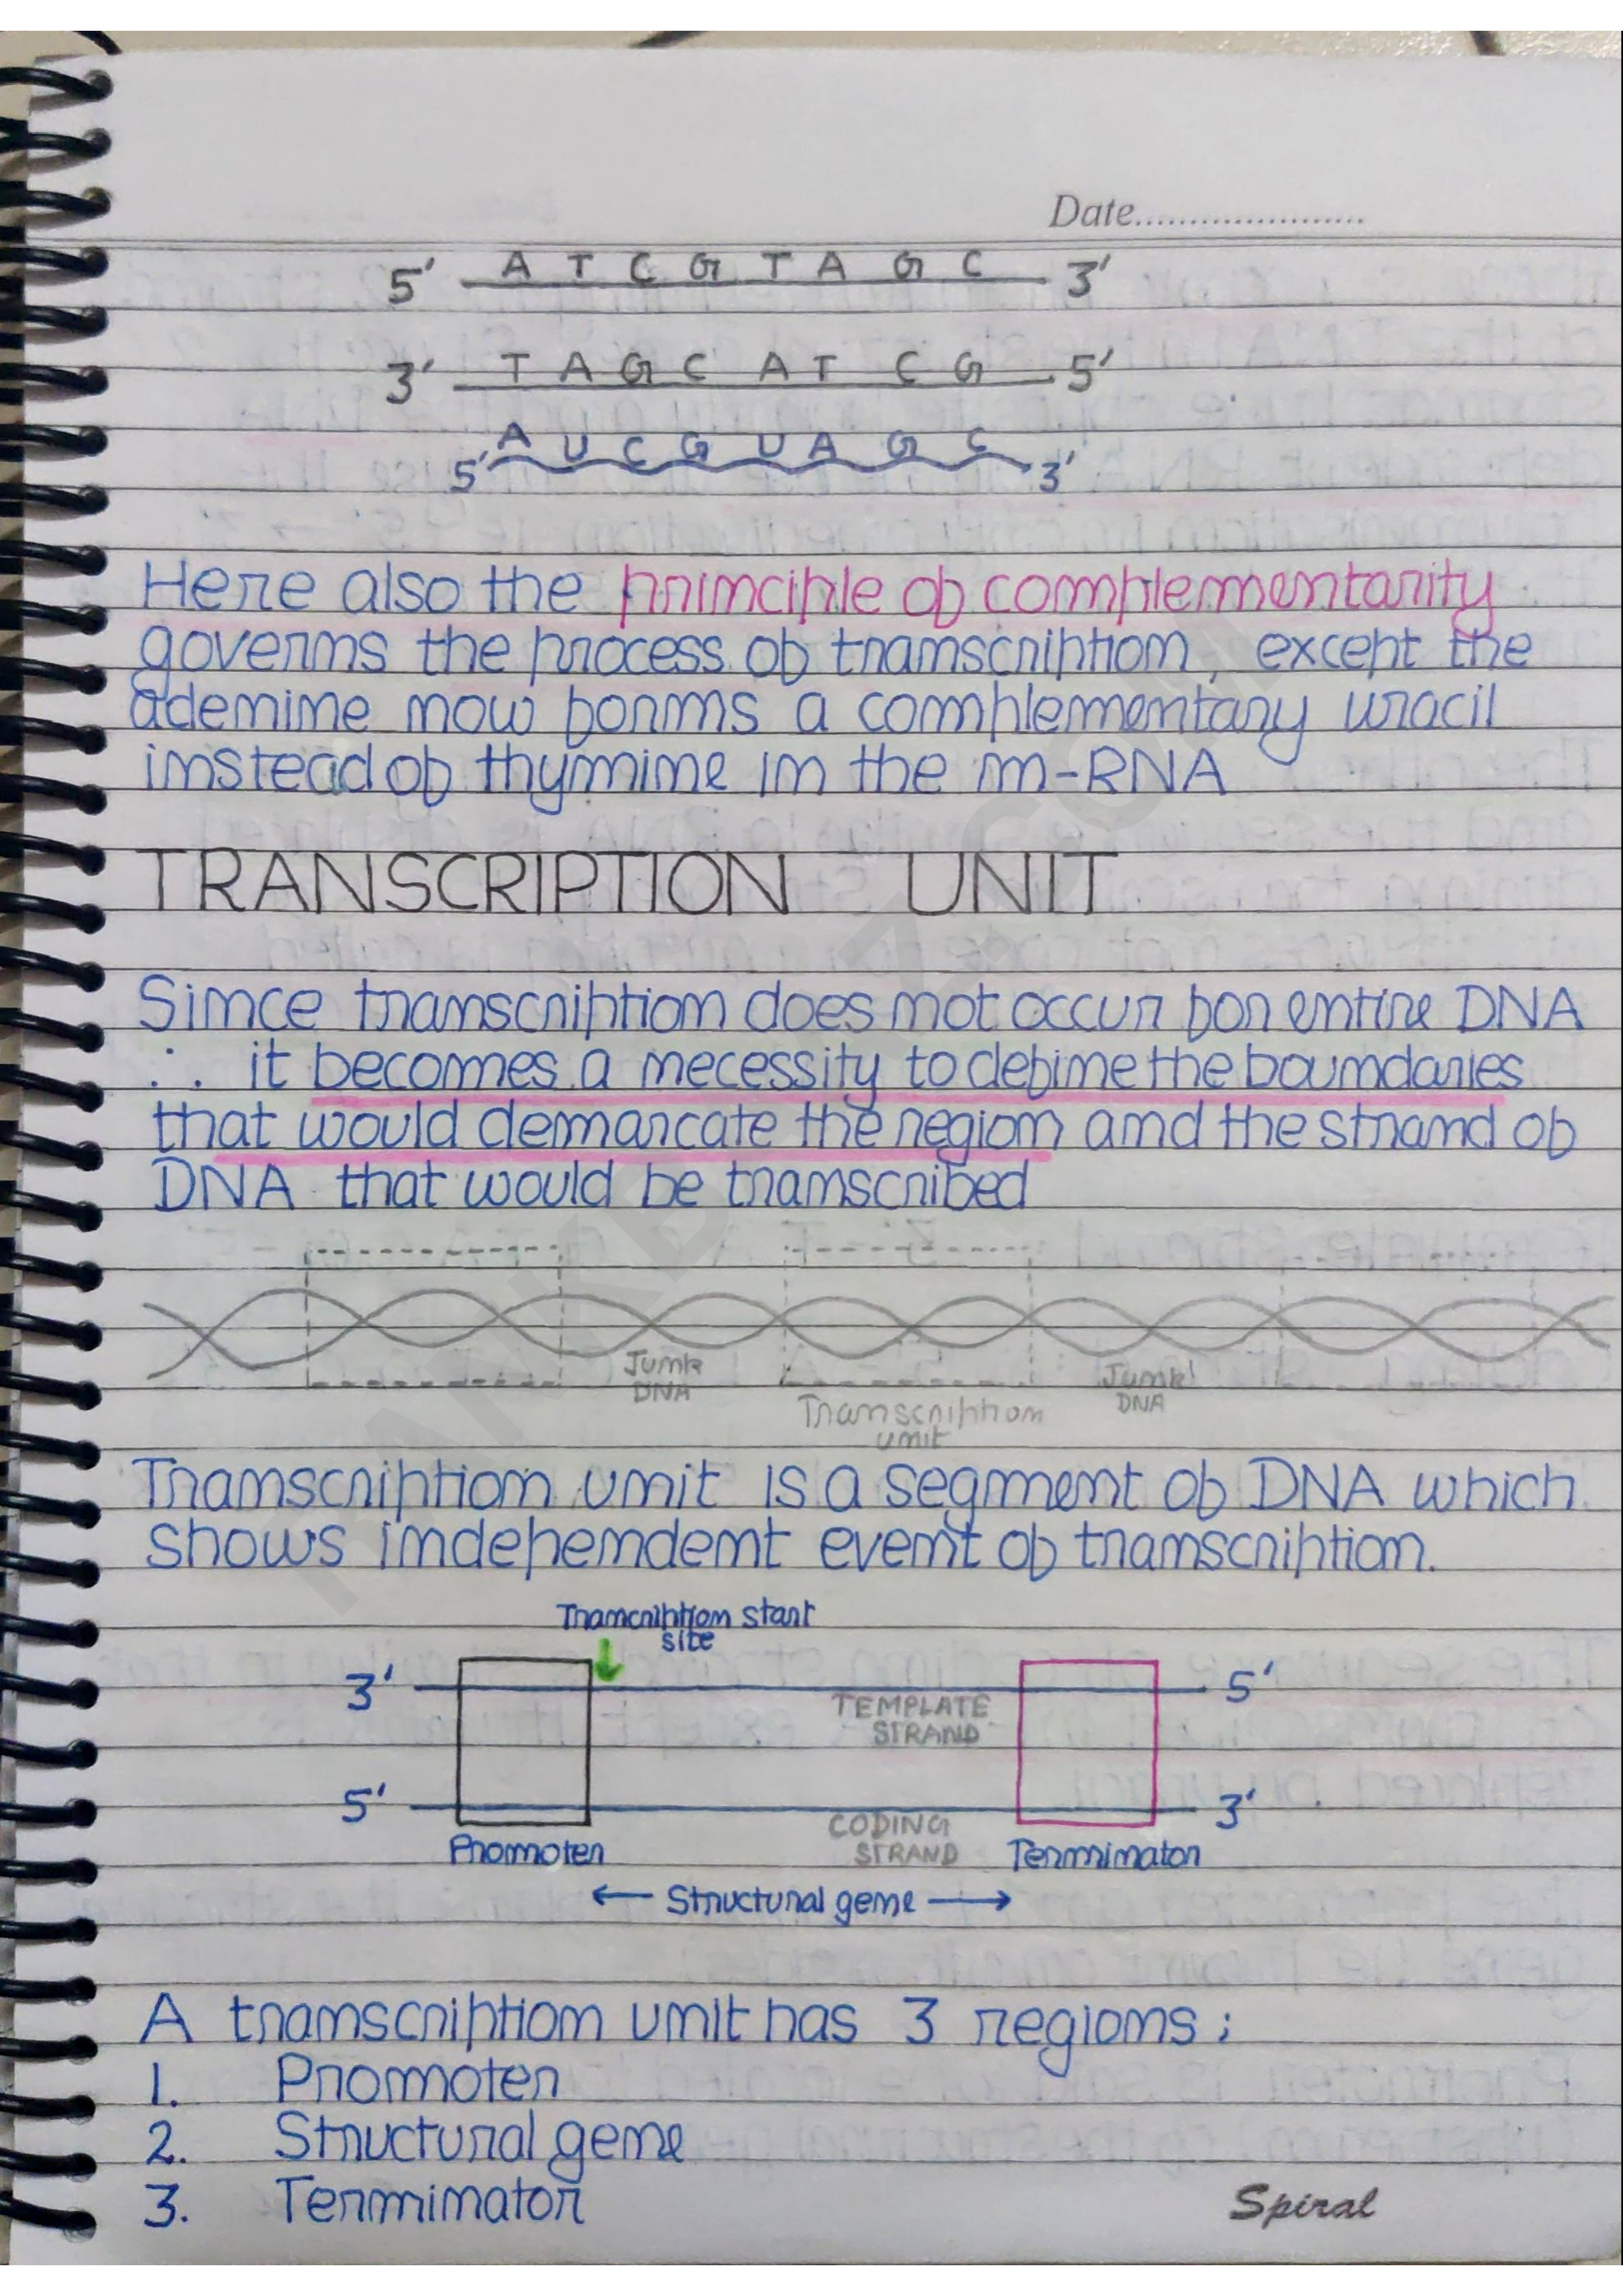 Date.....................
5' A T C G T A G C 3'
3' T A G C A T C G 5'
5' A U C G U A G C 3'
Here also the principle of complementarity
governs the process of transcription, except the
adenine now forms a complementary uracil
instead of thymine in the m-RNA
TRANSCRIPTION UNIT
Since transcription does not occur for entire DNA
∴ it becomes a necessity to define the boundaries
that would demarcate the region and the strand of
DNA that would be transcribed
Junk
DNA
Transcription
unit
Junk
DNA
Transcription unit is a segment of DNA which
shows independent event of transcription.
Trancription start
site
3' 5'
TEMPLATE
STRAND
5' 3'
CODING
STRAND
Promoter Terminator
← Structural gene →
A transcription unit has 3 regions;
1. Promoter
2. Structural gene
3. Terminator
Spiral